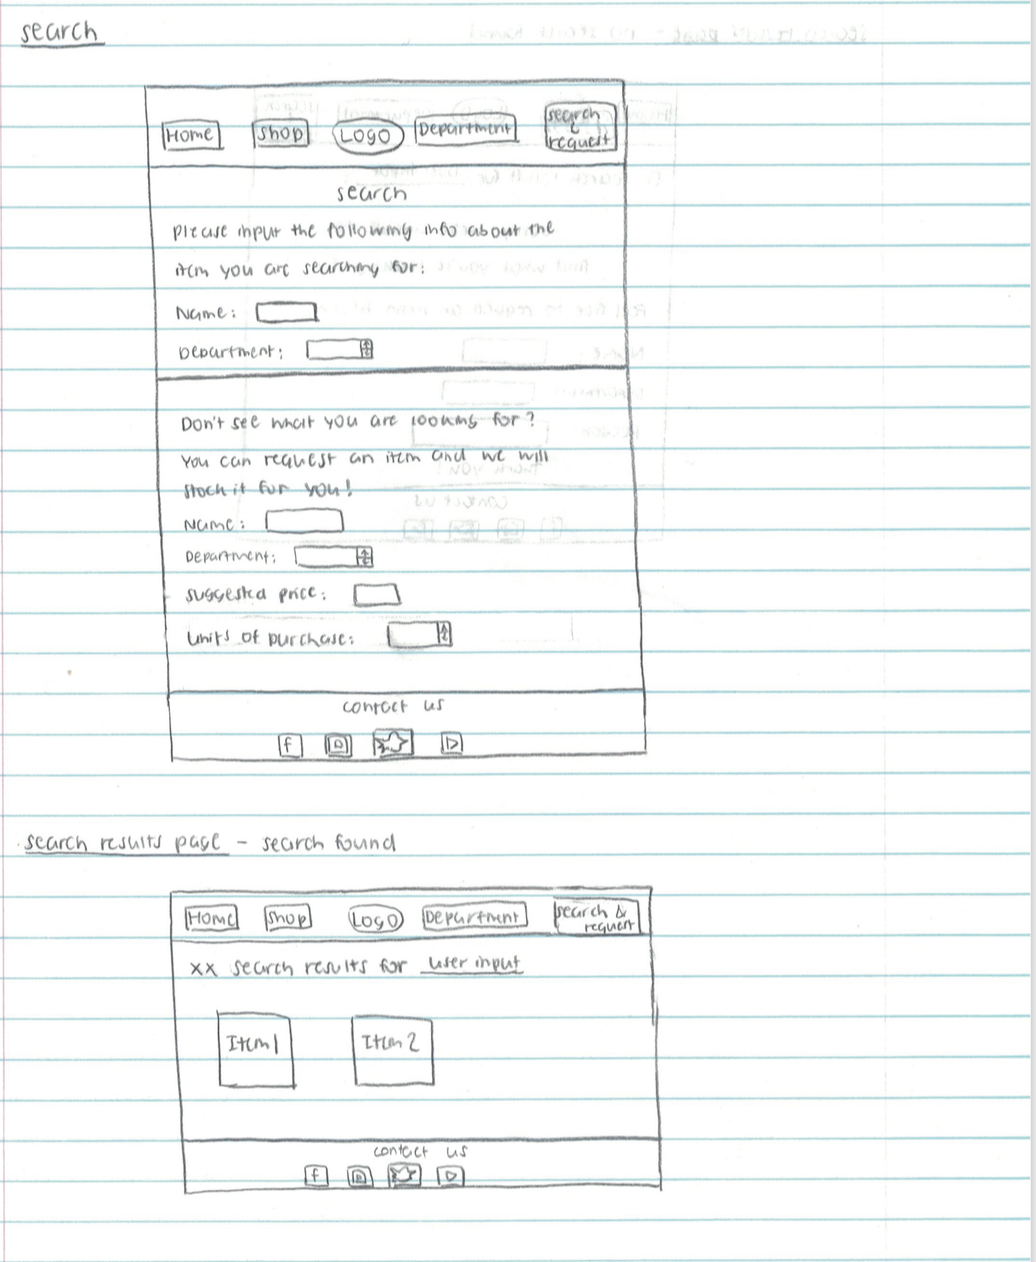 search
Home Shop LOGO Department search & request
search
Please input the following info about the
item you are searching for:
Name:
Department:
Don't see what you are looking for?
You can request an item and we will
stock it for you!
Name:
Department:
suggested price:
units of purchase:
contact us
f
search results page - search found
Home Shop LOGO Department search & request
xx search results for user input
Item 1 Item 2
contact us
f